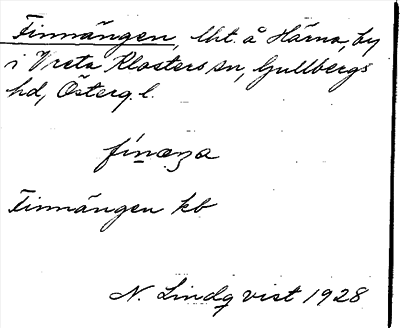 Finnängen, lht. å Härna, by
i Vreta Klosters sn, Gullbergs
hd, Österg. l.
Finnängen kb
N. Lindqvist 1928